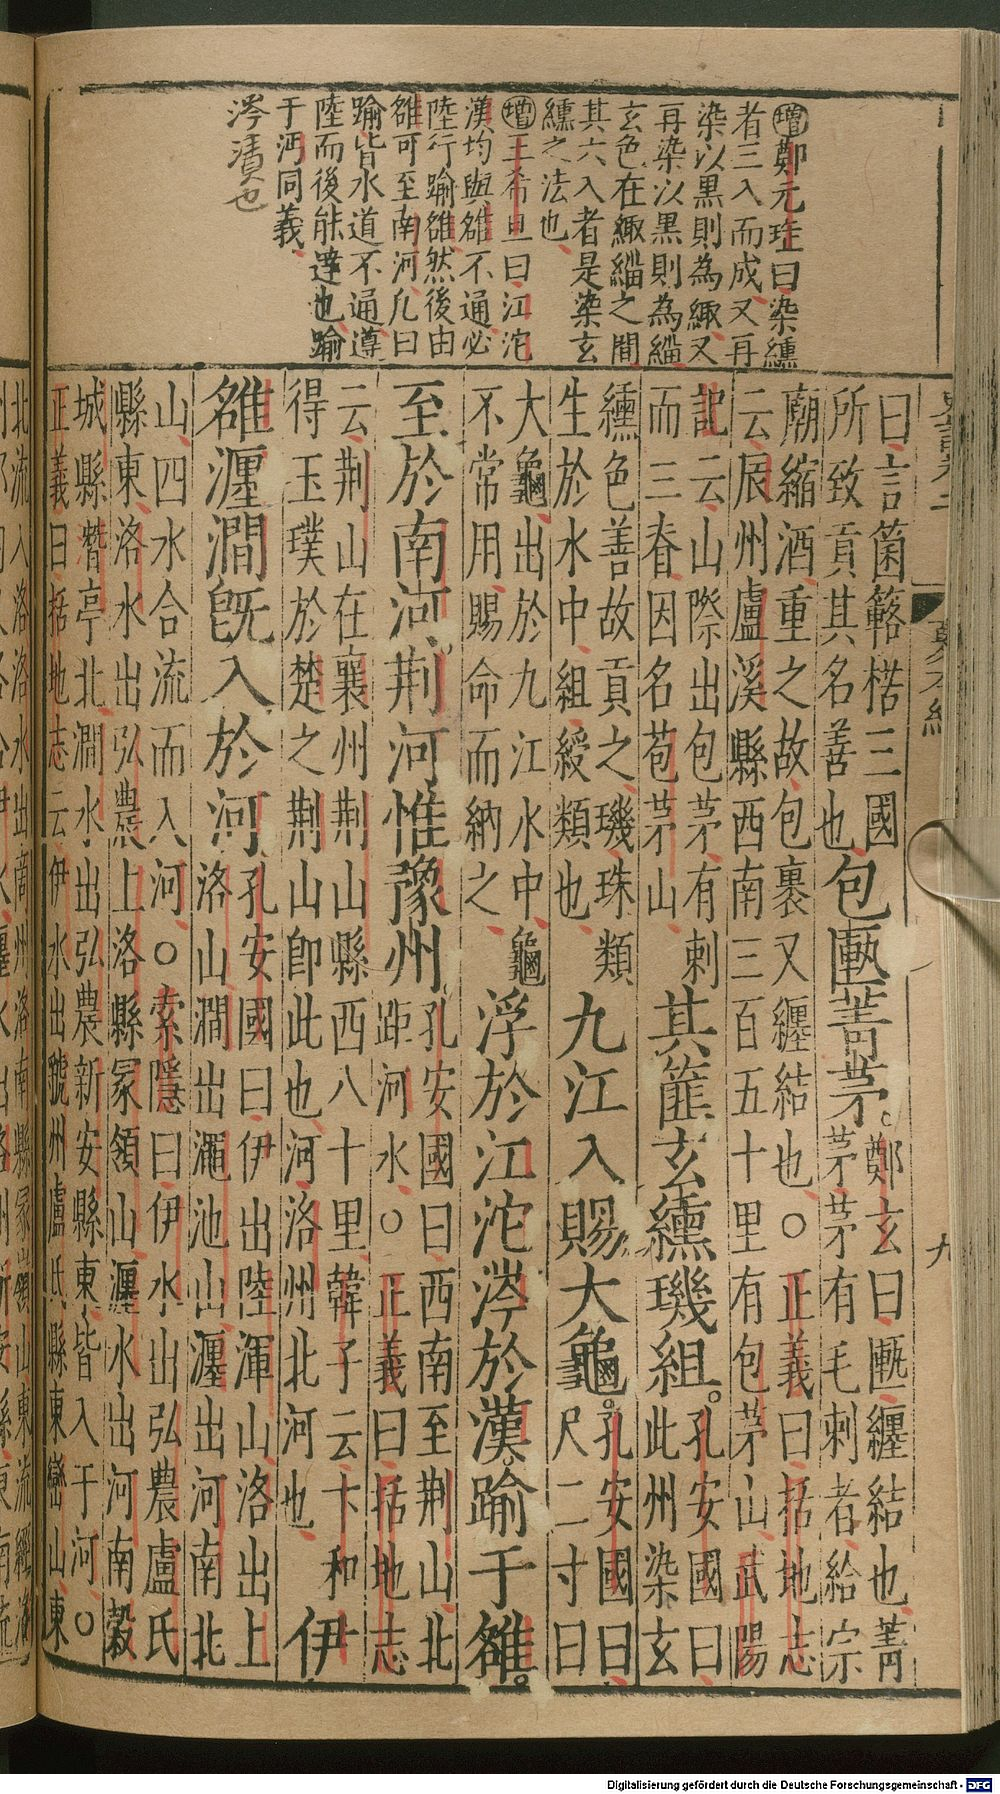 增鄭元珪曰染纁
者三入而成又再
染以黑則為緅又
再染以黑則為緇
玄色在緅緇之間
其六入者是染玄
纁之法也
增王希旦曰江沱
漢均與雒不通必
陸行踰雒然後由
雒可至南河凢曰
踰皆水道不通遵
陸而後能達也踰
于沔同義
涔漬也
九
曰言箘簵楛三國
所致貢其名善也
包匭菁茅。
鄭玄曰匭纏結也菁
茅茅有毛刺者給宗
廟縮酒重之故包裹又纏結也○正義曰括地志
云辰州盧溪縣西南三百五十里有包茅山武陽
記云山際出包茅有刺
而三脊因名苞茅山
其篚玄纁璣組。
孔安國曰
此州染玄
纁色善故貢之璣珠類
生於水中組綬類也
九江入賜大龜。
孔安國曰
尺二寸曰
大龜出於九江水中龜
不常用賜命而納之
浮於江沱涔於漢踰于雒。
至於南河荆河惟豫州
孔安國曰西南至荆山北
距河水○正義曰括地志
云荆山在襄州荆山縣西八十里韓子云卞和
得玉璞於楚之荆山即此也河洛州北河也
伊
雒瀍澗既入於河
孔安國曰伊出陸渾山洛出上
洛山澗出澠池山瀍出河南北
山四水合流而入河○索隱曰伊水出弘農盧氏
縣東洛水出弘農上洛縣冢領山瀍水出河南穀
城縣朁亭北澗水出弘農新安縣東皆入于河○
正義曰括地志云伊水出虢州盧氏縣東巒山東
北流入洛洛水出商州洛南縣冢嶺山東流經洛
Digitalisierung gefördert durch die Deutsche Forschungsgemeinschaft - DFG